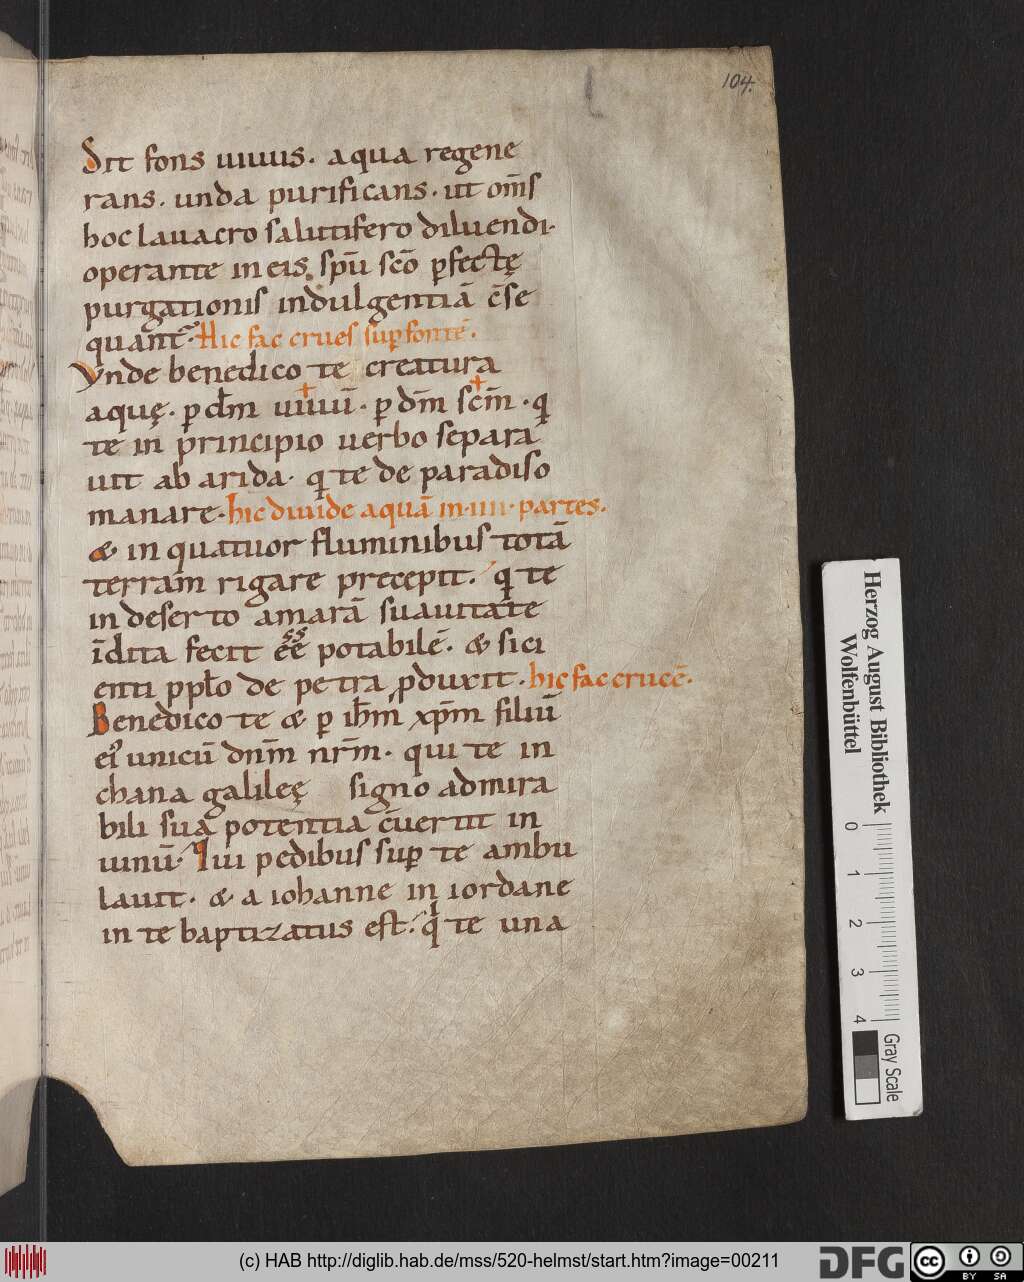 104.
Sit fons uiuus. aqua regene
rans. unda purificans. ut om̄s
hoc lauacro salutifero diluendi.
operante in eis. spū sc̄o ꝑfectę
purgationis indulgentiā c̄se
quant̄. Hic fac cruces suꝑ fontē.
Vnde benedico te creatura
aquę. ꝑ dm̄ uiuū. ꝑ dm̄ sc̄m. q̇
te in principio uerbo separa
uit ab arida. q̇ te de paradiso
manare. hic diuide aquā in .iiii. partes.
& in quatuor fluminibus totā
terram rigare precepit. q̇ te
in deserto amarā suauitate
īdita fecit eē potabilē. & sici
enti ppl̄o de petra ꝓduxit. hic fac crucē.
Benedico te & ꝑ ih̄m xp̄m filiū
ei᾽ unicū dnm̄ nr̄m. qui te in
chana galileę signo admira
bili sua potentia c̄uertit in
uinū. Qui pedibus suꝑ te ambu
lauit. & a iohanne in iordane
in te baptizatus est. q̇ te una
Herzog August Bibliothek
Wolfenbüttel
0 1 2 3 4
Gray Scale
(c) HAB http://diglib.hab.de/mss/520-helmst/start.htm?image=00211
DFG
cc BY SA